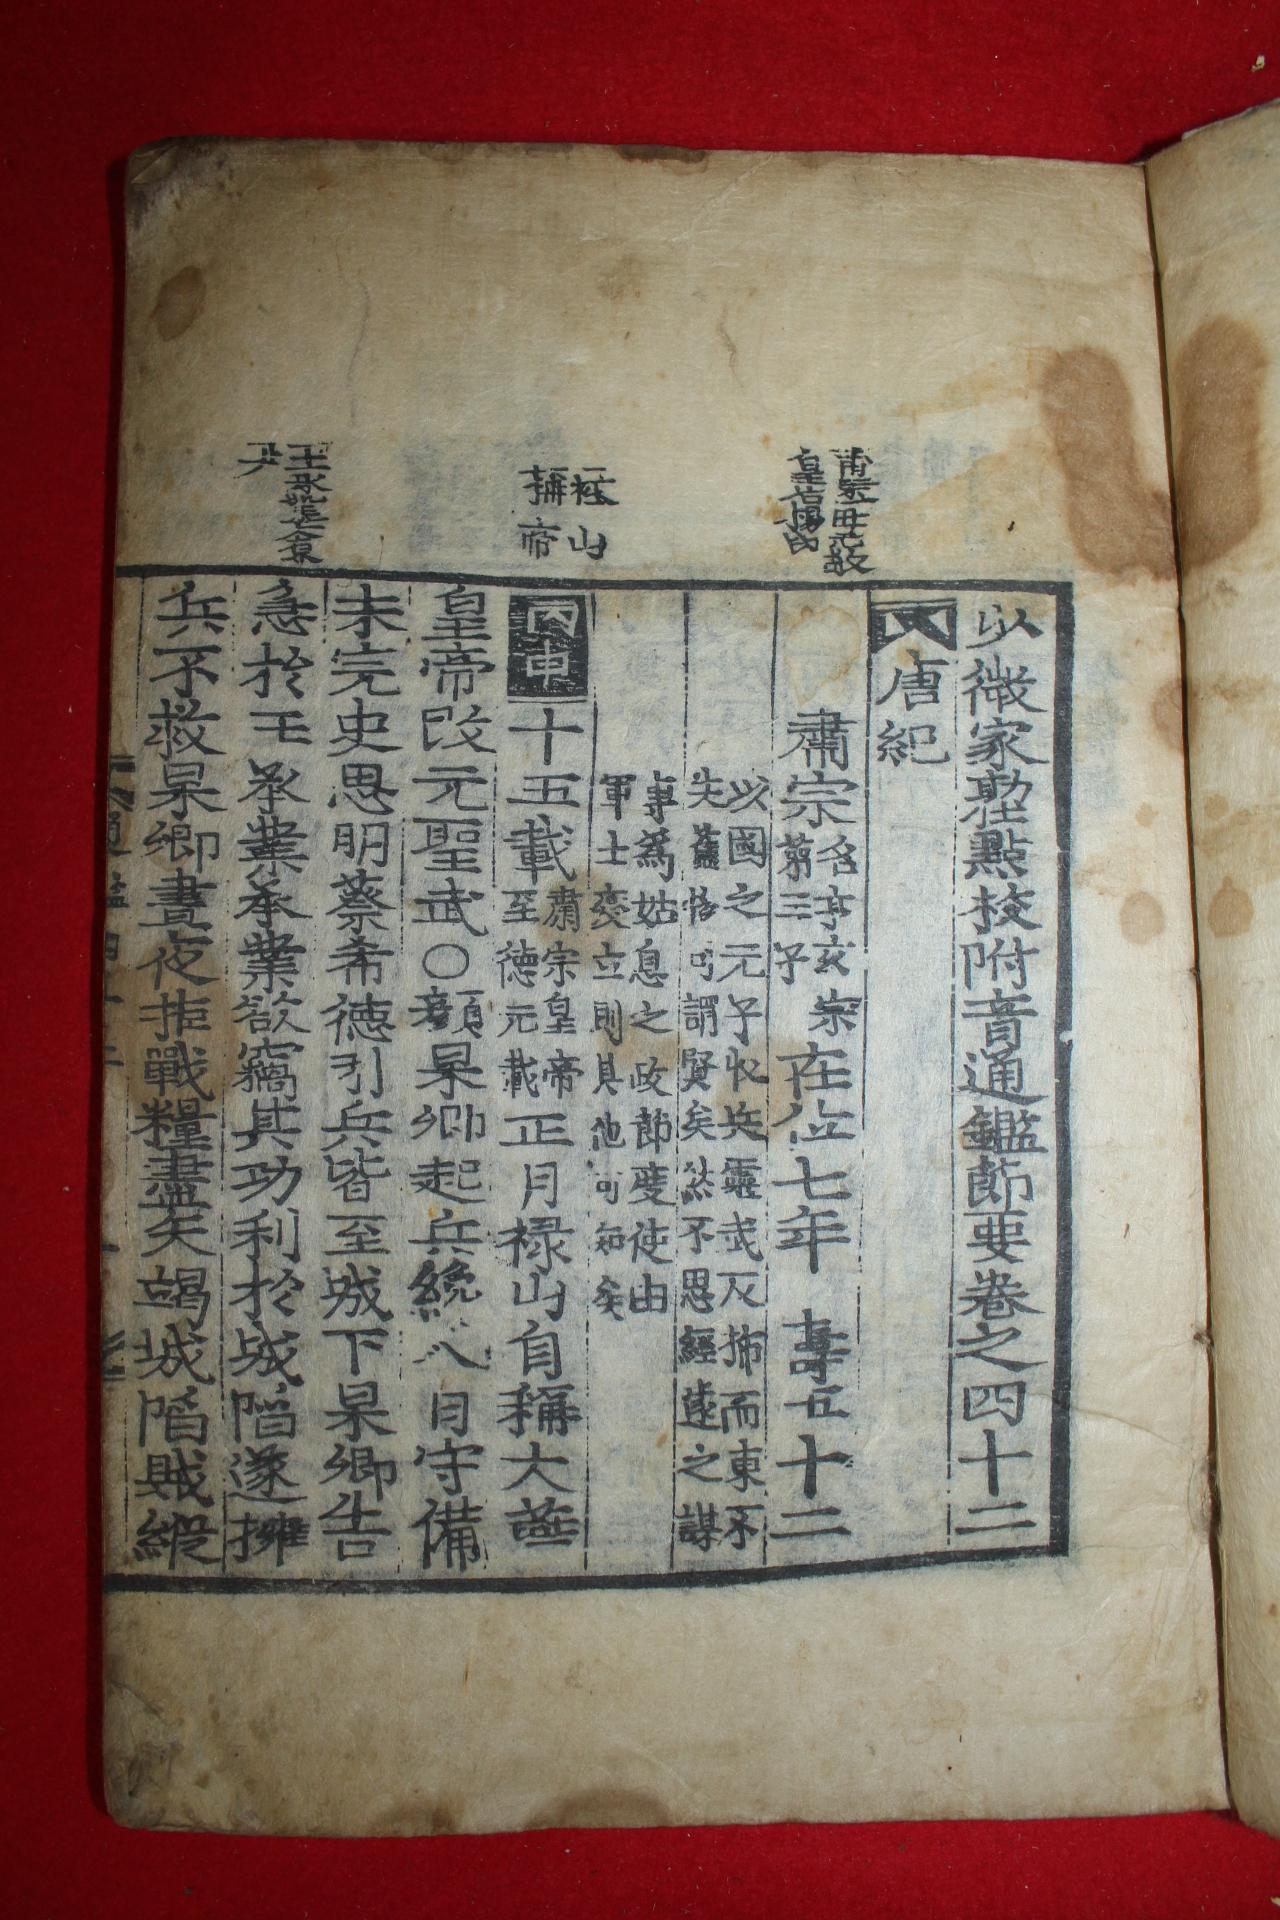 少微家塾點校附音通鑑節要卷之四十二
唐紀
肅宗名亨玄宗第三子在位七年 壽五十二
以國之元子收兵靈武反拂而東不
失舊物可謂賢矣然不思經遠之謀
事爲姑息之政節度使由
軍士廢立則其他可知矣
丙申十五載肅宗皇帝至德元載正月祿山自稱大燕
皇帝改元聖武○顔杲卿起兵纔八日守備
未完史思明蔡希德引兵皆至城下杲卿告
急於王承業承業欲竊其功利於城陷遂擁
兵不救杲卿晝夜拒戰糧盡矢竭城陷賊縱
祿山
稱帝